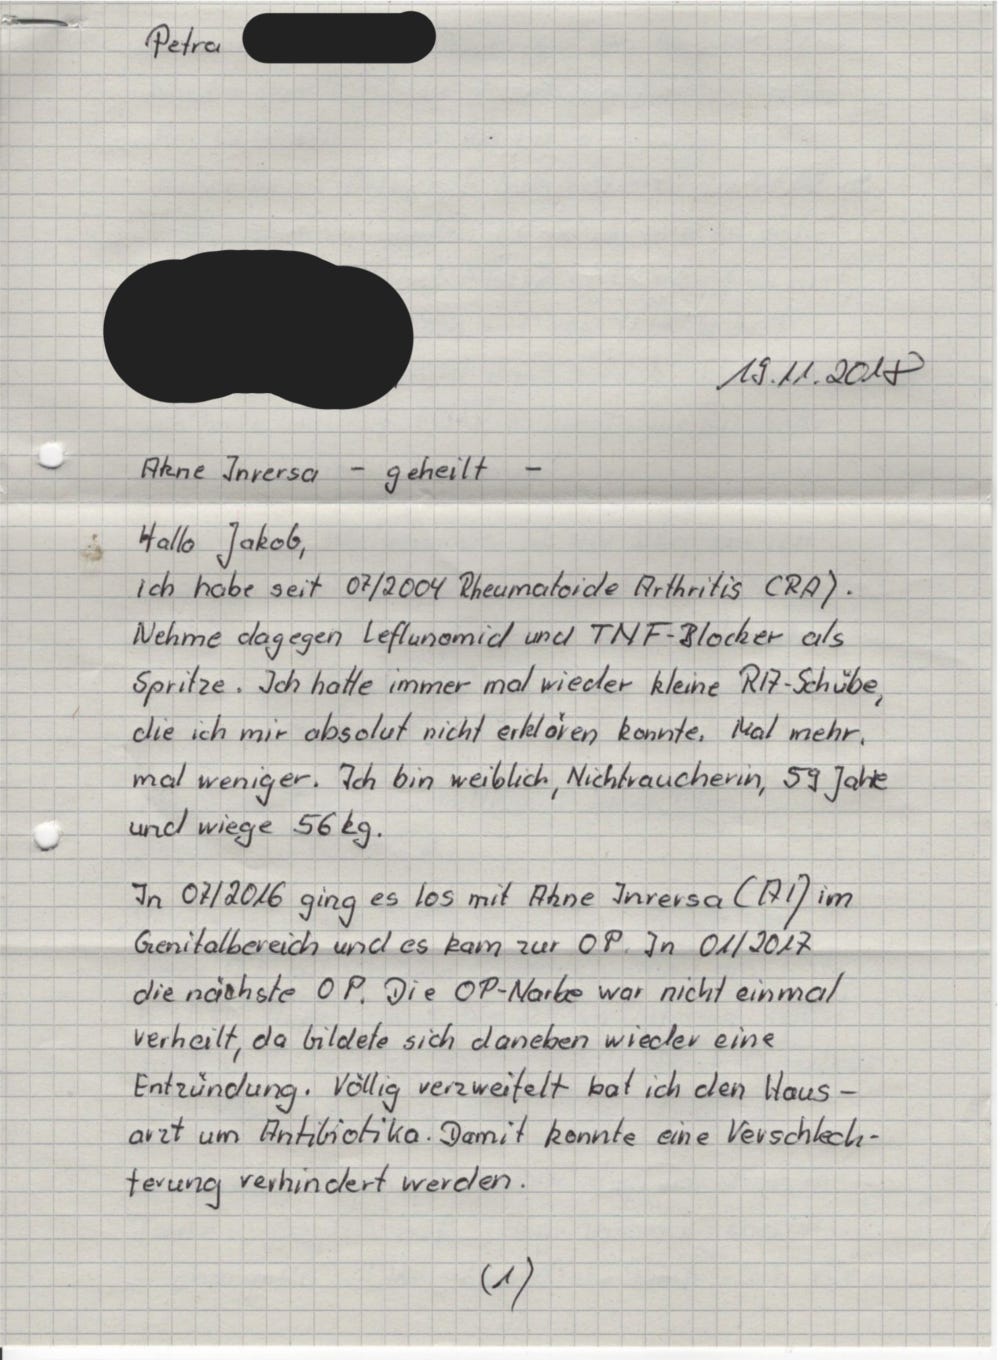 Petra
19.11.2018
Akne Inversa - geheilt -
Hallo Jakob,
ich habe seit 07/2004 Rheumatoide Arthritis (RA).
Nehme dagegen Leflunomid und TNF-Blocker als
Spritze. Ich hatte immer mal wieder kleine RA-Schübe,
die ich mir absolut nicht erklären konnte. Mal mehr,
mal weniger. Ich bin weiblich, Nichtraucherin, 59 Jahre
und wiege 56 kg.
In 07/2016 ging es los mit Akne Inversa (AI) im
Genitalbereich und es kam zur OP. In 01/2017
die nächste OP. Die OP-Narbe war nicht einmal
verheilt, da bildete sich daneben wieder eine
Entzündung. Völlig verzweifelt bat ich den Haus-
arzt um Antibiotika. Damit konnte eine Verschlech-
terung verhindert werden.
(1)